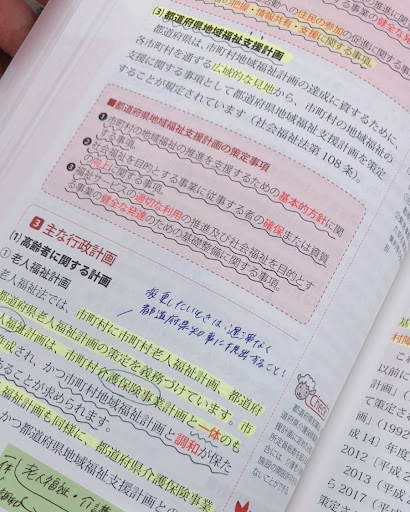 動への住民の参加の促進に関する事
の把握・情報共有・支援に関する事項。
(3) 都道府県地域福祉支援計画
都道府県は、市町村地域福祉計画の達成に資するために、
各市町村を通ずる広域的な見地から、市町村の地域福祉の
支援に関する事項として都道府県地域福祉支援計画を策定
することが規定されています（社会福祉法第108条）。
■都道府県地域福祉支援計画の策定事項
❶市町村の地域福祉の推進を支援するための基本的方針に関
する事項。
❷社会福祉を目的とする事業に従事する者の確保または資質
の向上に関する事項。
❸福祉サービスの適切な利用の推進及び社会福祉を目的とす
る事業の健全な発達のための基盤整備に関する事項。
3 主な行政計画
(1) 高齢者に関する計画
① 老人福祉計画
変更したいときは、遅滞なく
都道府県知事に提出すること!
老人福祉法では、市町村に市町村老人福祉計画、都道府
都道府県老人福祉計画の策定を義務づけています。市
人福祉計画は、市町村介護保険事業計画と一体のも
作成され、かつ市町村地域福祉計画と調和が保た
あることが求められます。
福祉計画も同様に、都道府県介護保険事業
かつ都道府県地域福祉支援計画との
Check
老人福祉・介護